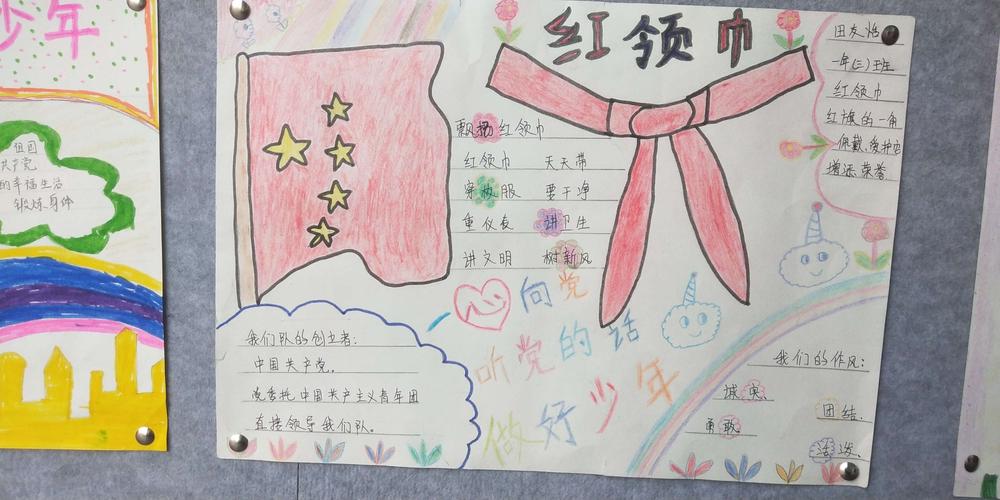 少年
祖国
共产党
的幸福生活
锻炼身体
红领巾
飘扬红领巾
红领巾 天天带
穿校服 要干净
重仪表 讲卫生
讲文明 树新风
田友怡
一年(三)班
红领巾
红旗的一角
佩戴、爱护它
增添荣誉
心向党
听党的话
做好少年
我们队的创立者:
中国共产党。
党委托中国共产主义青年团
直接领导我们队。
我们的作风:
诚实、
勇敢、
团结、
活泼、